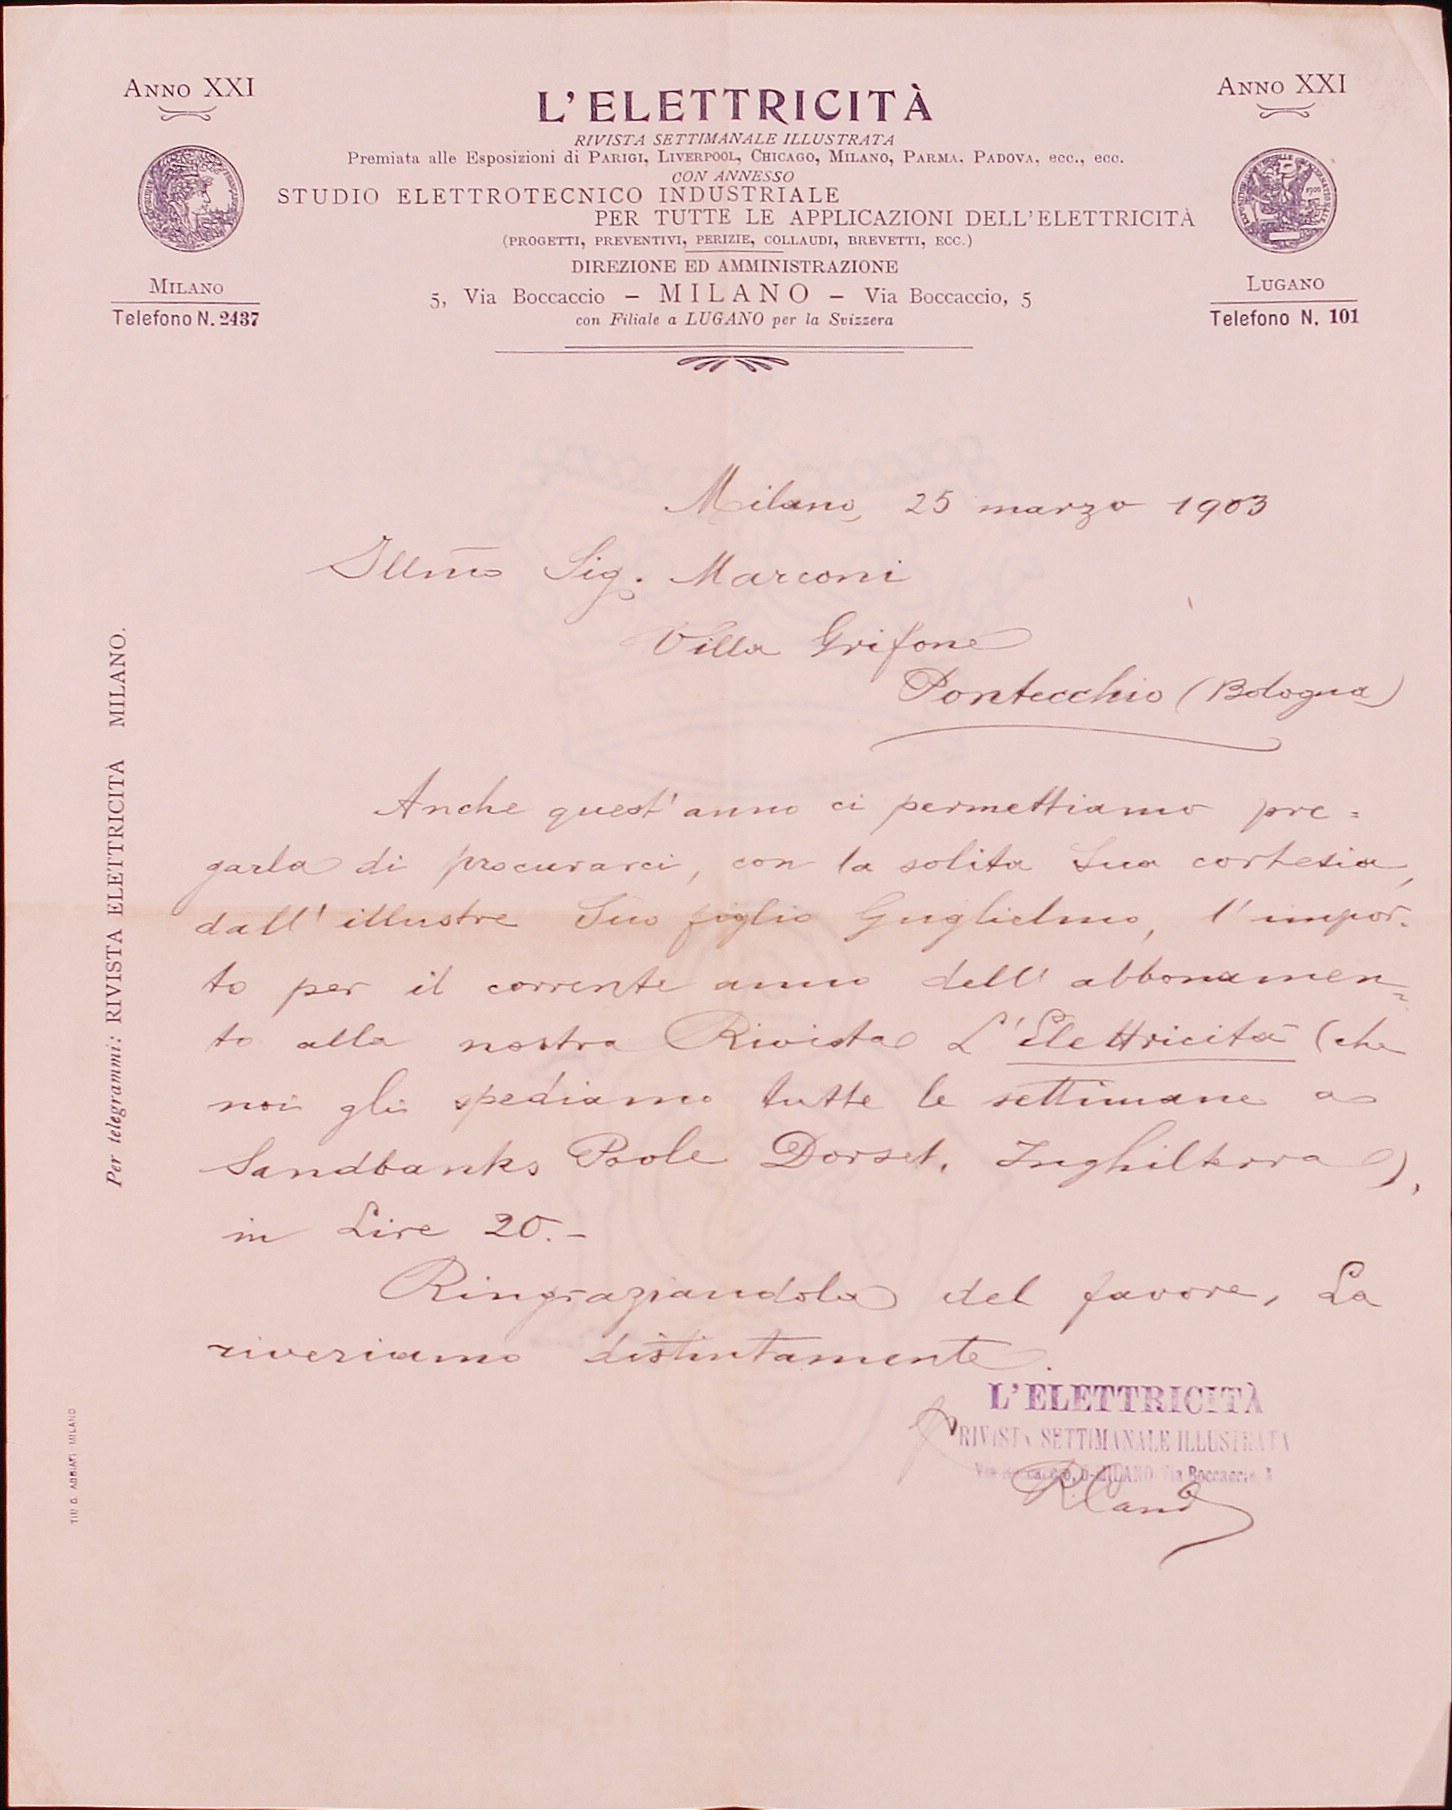 ANNO XXI
MILANO
Telefono N. 2437
L'ELETTRICITÀ
RIVISTA SETTIMANALE ILLUSTRATA
Premiata alle Esposizioni di PARIGI, LIVERPOOL, CHICAGO, MILANO, PARMA, PADOVA, ecc., ecc.
CON ANNESSO
STUDIO ELETTROTECNICO INDUSTRIALE
PER TUTTE LE APPLICAZIONI DELL'ELETTRICITÀ
(PROGETTI, PREVENTIVI, PERIZIE, COLLAUDI, BREVETTI, ECC.)
DIREZIONE ED AMMINISTRAZIONE
5, Via Boccaccio – MILANO – Via Boccaccio, 5
con Filiale a LUGANO per la Svizzera
ANNO XXI
LUGANO
Telefono N. 101
Milano, 25 marzo 1903
Illmo Sig. Marconi
Villa Grifone
Pontecchio (Bologna)
Anche quest'anno ci permettiamo pre=
garla di procurarci, con la solita Sua cortesia,
dall'illustre Suo figlio Guglielmo, l'impor-
to per il corrente anno dell'abbonamen=
to alla nostra Rivista L'Elettricità (che
noi gli spediamo tutte le settimane a
Sandbanks Poole Dorset, Inghilterra),
in Lire 20.-
Ringraziandola del favore, La
riveriamo distintamente.
L'ELETTRICITÀ
RIVISTA SETTIMANALE ILLUSTRATA
Via Boccaccio, 5-MILANO-Via Boccaccio, 5
Per telegrammi: RIVISTA ELETTRICITÀ MILANO.
TIP. G. ABBIATI - MILANO